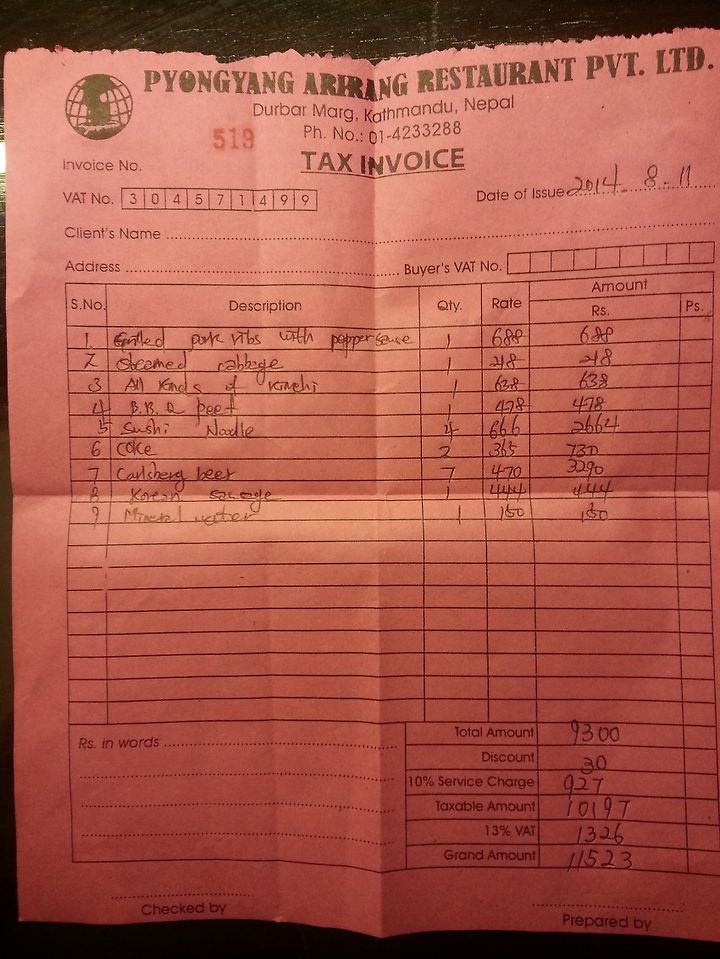 PYONGYANG ARIRANG RESTAURANT PVT. LTD.
Durbar Marg, Kathmandu, Nepal
Ph. No.: 01-4233288
519
TAX INVOICE
Invoice No.
VAT No. 304571499
Date of Issue 2014. 8-11
Client's Name
Address
Buyer's VAT No.
S.No. Description Qty. Rate Amount
Rs. Ps.
1. Grilled pork ribs with pepper sause 1 688 688
2 Steamed cabbage 1 218 218
3 All kinds of kimchi 1 638 638
4 B.B.Q beef 1 478 478
5 Sushi Noodle 4 666 2664
6 coke 2 365 730
7 Carlsberg beer 7 470 3290
8 Korean 1 444 444
9 Mineral water 1 150 150
Rs. in words
Total Amount 9300
Discount 30
10% Service Charge 927
Taxable Amount 10197
13% VAT 1326
Grand Amount 11523
Checked by
Prepared by